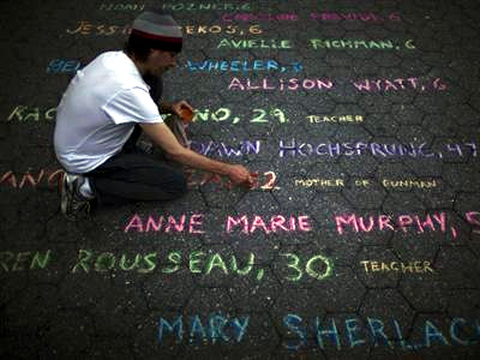 NOAH POZNER,
CAROLINE PREVIDI, 6
JESSI EKOS, 6
AVIELLE RICHMAN, 6
BE WHEELER,
ALLISON WYATT, 6
RAC NO, 29 TEACHER
DAWN HOCHSPRUNG, 47
ANC 52 MOTHER OF GUNMAN
ANNE MARIE MURPHY, 5
REN ROUSSEAU, 30 TEACHER
MARY SHERLAC